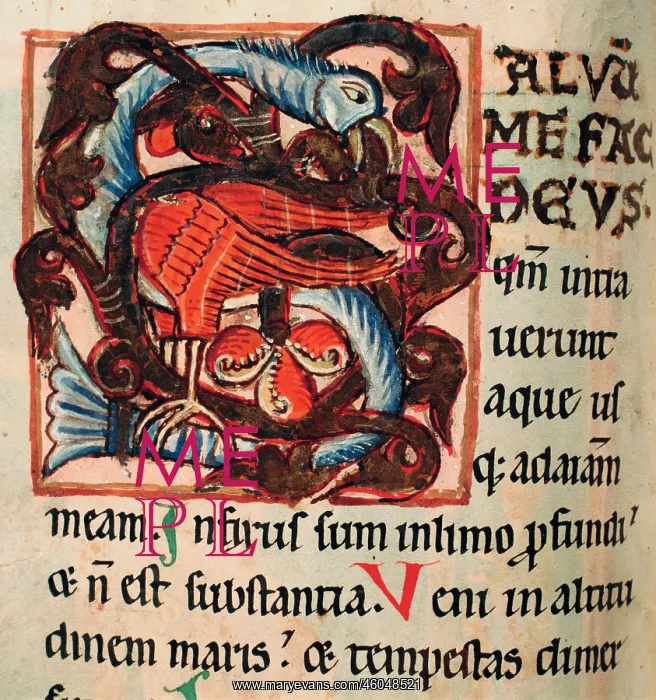 ALVṼ
ME FAC
DEVS.
qm̄ intra
uerunt
aque us
q; ad aīam
meam. Infixus sum in limo ꝓfundi
⁊ n̄ est substantia. Veni in altitu
dinem maris : ⁊ tempestas dimer
ME
PL
ME
PL
www.maryevans.com/46048521